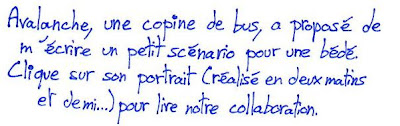 Avalanche, une copine de bus, a proposé de
m'écrire un petit scénario pour une bédé.
Clique sur son portrait (réalisé en deux matins
et demi...) pour lire notre collaboration.